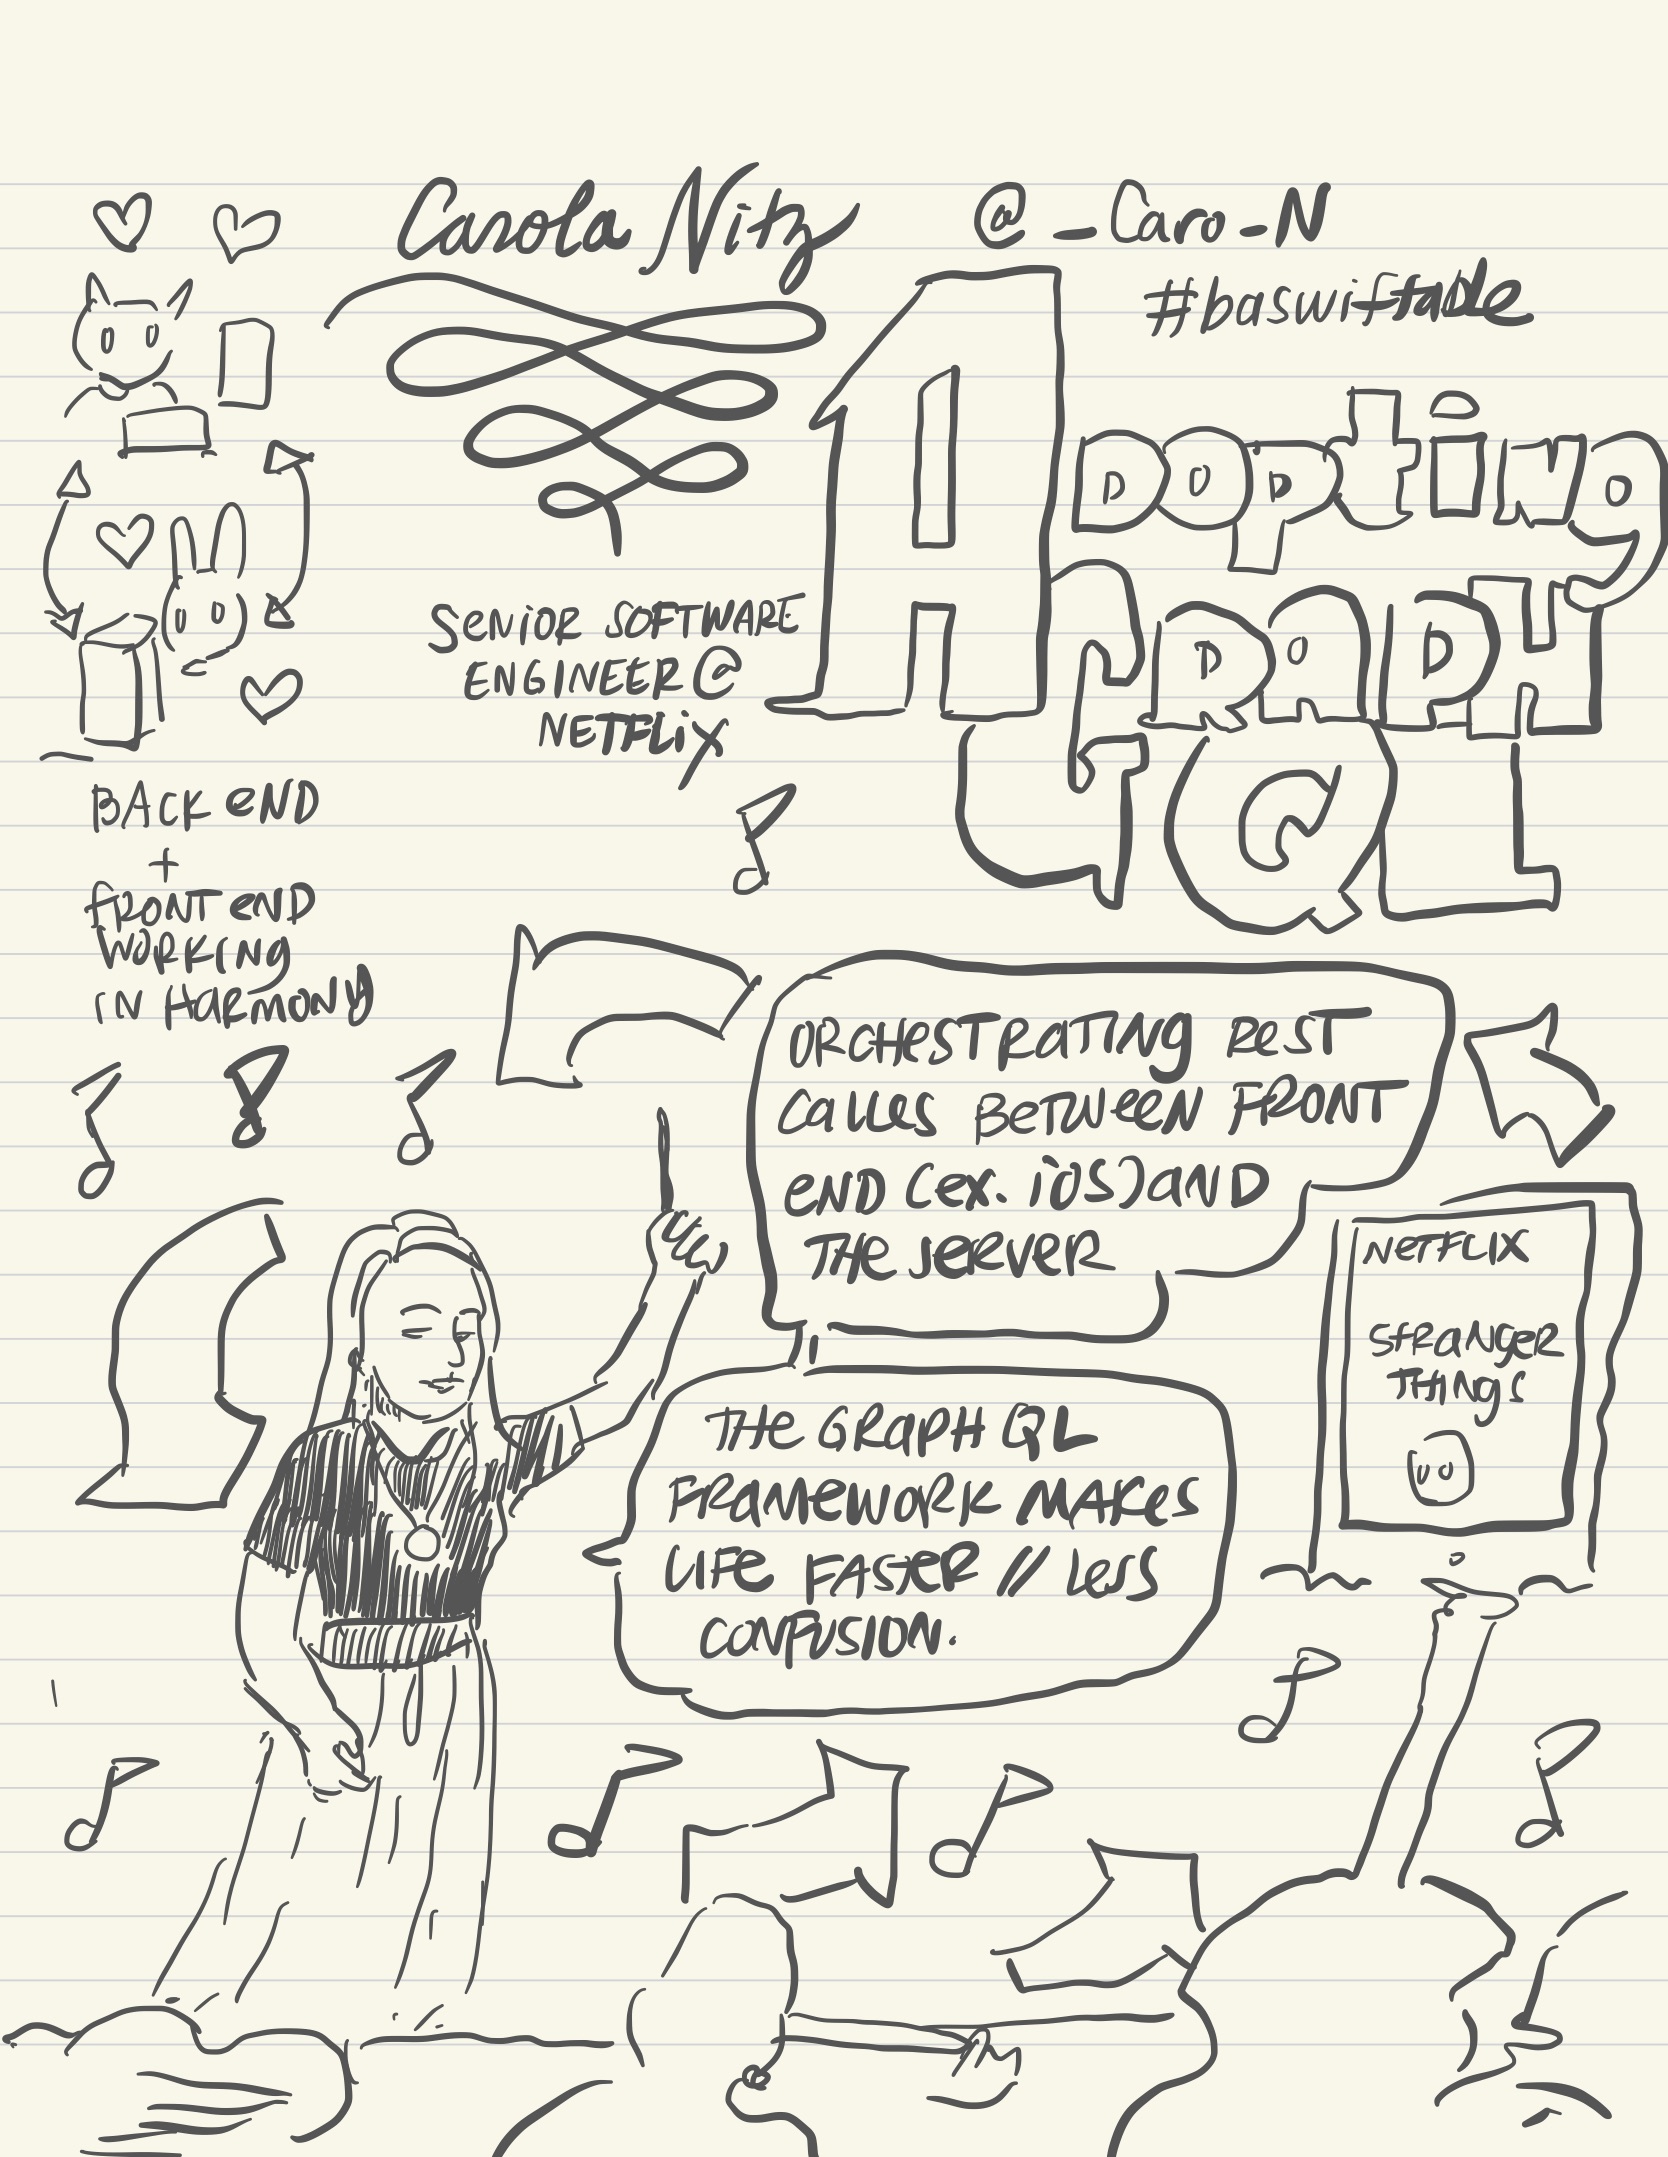 Carola Nitz
@_Caro_N
#baswiftable
Adopting
GRAPH
QL
SENIOR SOFTWARE
ENGINEER @
NETFLIX
BACK END
+
FRONT END
WORKING
IN HARMONY
ORCHESTRATING REST
CALLS BETWEEN FRONT
END (ex. iOS) AND
THE SERVER
NETFLIX
STRANGER
THINGS
THE GRAPH QL
FRAMEWORK MAKES
LIFE FASTER // LESS
CONFUSION.